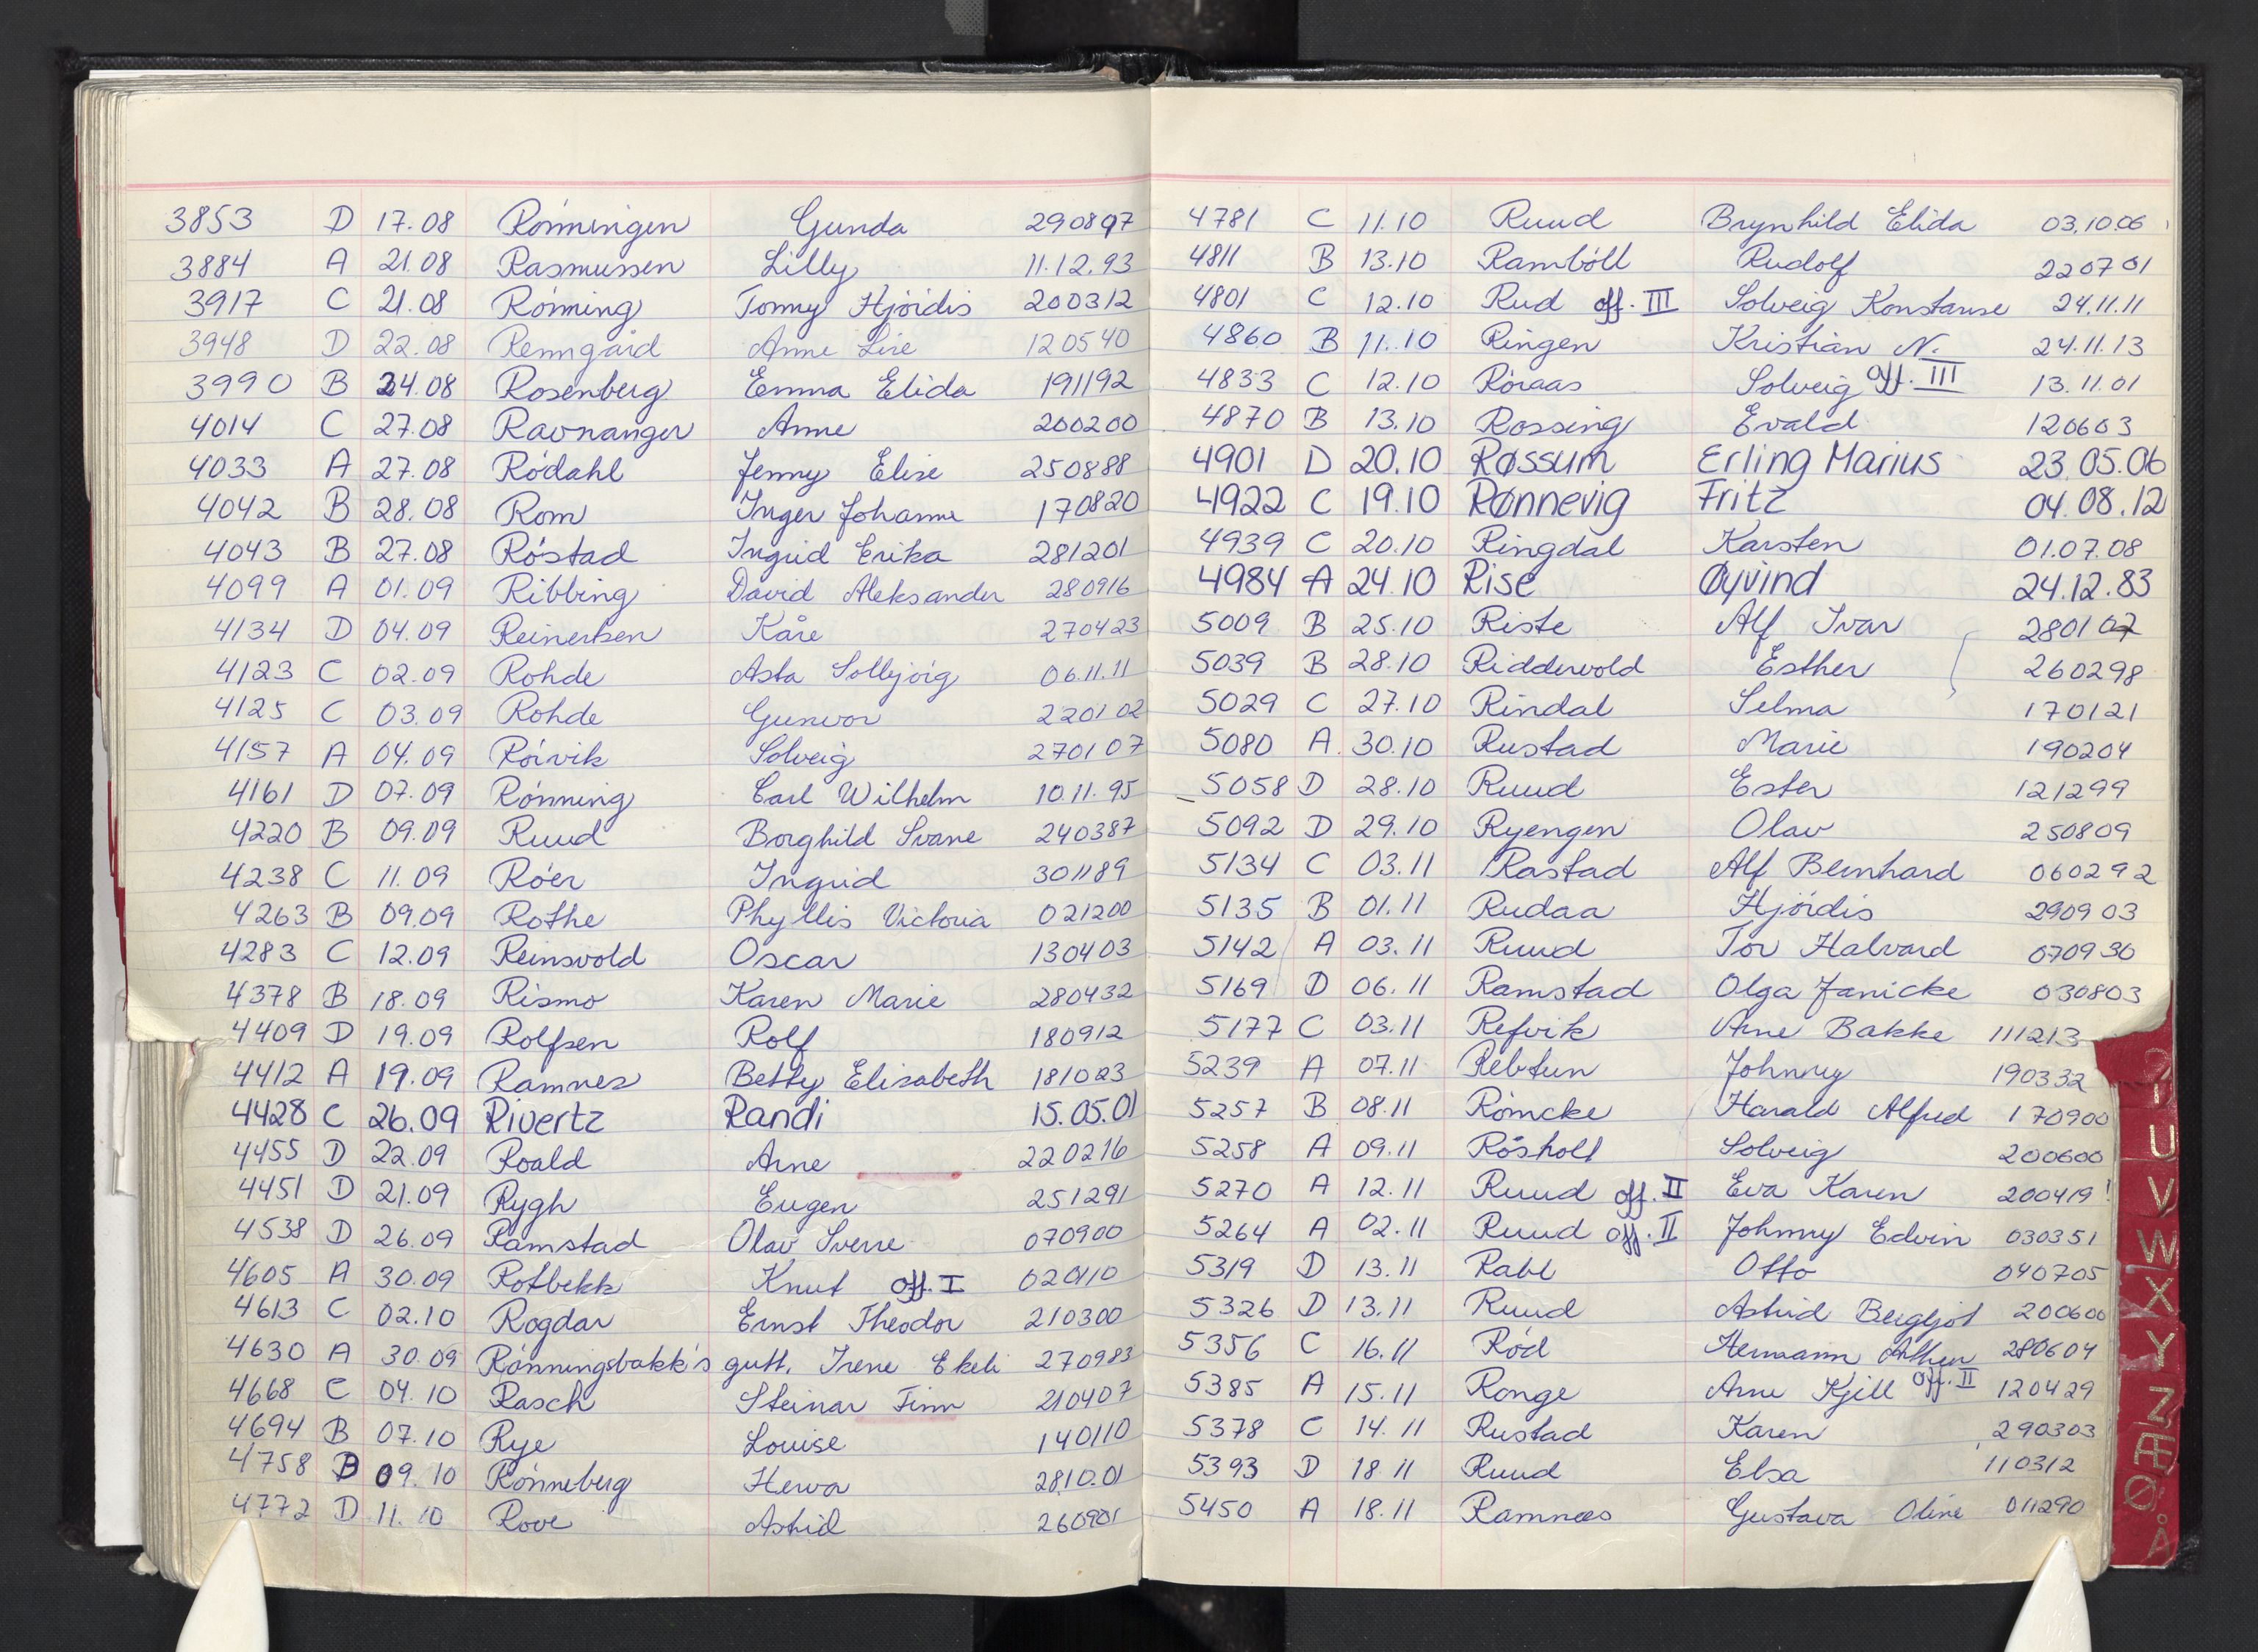 3853 D 17.08 Rønningen Gunda 290897
3884 A 21.08 Rasmussen Lilly 11.12.93
3917 C 21.08 Rønning Tonny Hjørdis 200312
3948 D 22.08 Renngård Anne Lise 120540
3990 B 24.08 Rosenberg Emma Elida 191192
4014 C 27.08 Ravnanger Anne 200200
4033 A 27.08 Rødahl Jenny Elise 250888
4042 B 28.08 Rom Inger Johanne 170820
4043 B 27.08 Røstad Ingrid Erika 281201
4099 A 01.09 Ribbing David Aleksander 280916
4134 D 04.09 Reinertsen Kåre 270423
4123 C 02.09 Rohde Asta Solbjørg 06.11.11
4125 C 03.09 Rohde Gunvor 220102
4157 A 04.09 Rørvik Solveig 270107
4161 D 07.09 Rønning Carl Wilhelm 10.11.95
4220 B 09.09 Ruud Borghild Svane 240387
4238 C 11.09 Røer Ingrid 301189
4263 B 09.09 Rothe Phyllis Victoria 021200
4283 C 12.09 Reinsvold Oscar 130403
4378 B 18.09 Rismo Karen Marie 280432
4409 D 19.09 Rolfsen Rolf 180912
4412 A 19.09 Ramnes Betty Elisabeth 181023
4428 C 26.09 Rivertz Randi 15.05.01
4455 D 22.09 Roald Arne 220216
4451 D 21.09 Rygh Eugen 251291
4538 D 26.09 Ramstad Olav Sverre 070900
4605 A 30.09 Rotbekk Knut off. I 020110
4613 C 02.10 Rogdar Ernst Theodor 210300
4630 A 30.09 Rønningsbakk's gutt, Irene Ekeli 270983
4668 C 04.10 Rasch Steinar Finn 210407
4694 B 07.10 Rye Louise 140110
4758 D 09.10 Rønneberg Herva 28.10.01
4772 D 11.10 Rove Astrid 260901
4781 C 11.10 Ruud Brynhild Elida 03.10.06
4811 B 13.10 Rambøll Rudolf 220701
4801 C 12.10 Rud off. III Solveig Konstanse 24.11.11
4860 B 11.10 Ringen Kristian N. 24.11.13
4833 C 12.10 Røraas Solveig off. III 13.11.01
4870 B 13.10 Rossing Evald 120603
4901 D 20.10 Røssum Erling Marius 23.05.06
4922 C 19.10 Rønnevig Fritz 04.08.12
4939 C 20.10 Ringdal Karsten 01.07.08
4984 A 24.10 Rise Øyvind 24.12.83
5009 B 25.10 Riste Alf Ivar 280107
5039 B 28.10 Riddervold Esther 260298
5029 C 27.10 Rindal Selma 170121
5080 A. 30.10 Rustad Marie 190204
5058 D 28.10 Ruud Ester 121299
5092 D 29.10 Ryengen Olav 250809
5134 C 03.11 Rastad Alf Bernhard 060292
5135 B 01.11 Rudaa Hjørdis 290903
5142 A 03.11 Ruud Tor Halvard 070930
5169 D 06.11 Ramstad Olga Janicke 030803
5177 C 03.11 Refvik Arne Bakke 111213
5239 A 07.11 Rebtun Johnny 190332
5257 B 08.11 Rømcke Harald Alfred 170900
5258 A 09.11 Røsholt Solveig 200600
5270 A 12.11 Ruud off. II Eva Karen 200419
5264 A 02.11 Ruud off. II Johnny Edvin 030351
5319 D 13.11 Rabl Otto 040705
5326 D 13.11 Ruud Astrid Bergljot 200600
5356 C 16.11 Rød Hermann Arthur 280604
5385 A 15.11 Ronge Arne Kjell off. II 120429
5378 C 14.11 Rustad Karen 290303
5393 D 18.11 Ruud Elsa 110312
5450 A 18.11 Ramnæs Gustava Oline 011290
U
V
W
X
Y
Z
Æ
Ø
Å